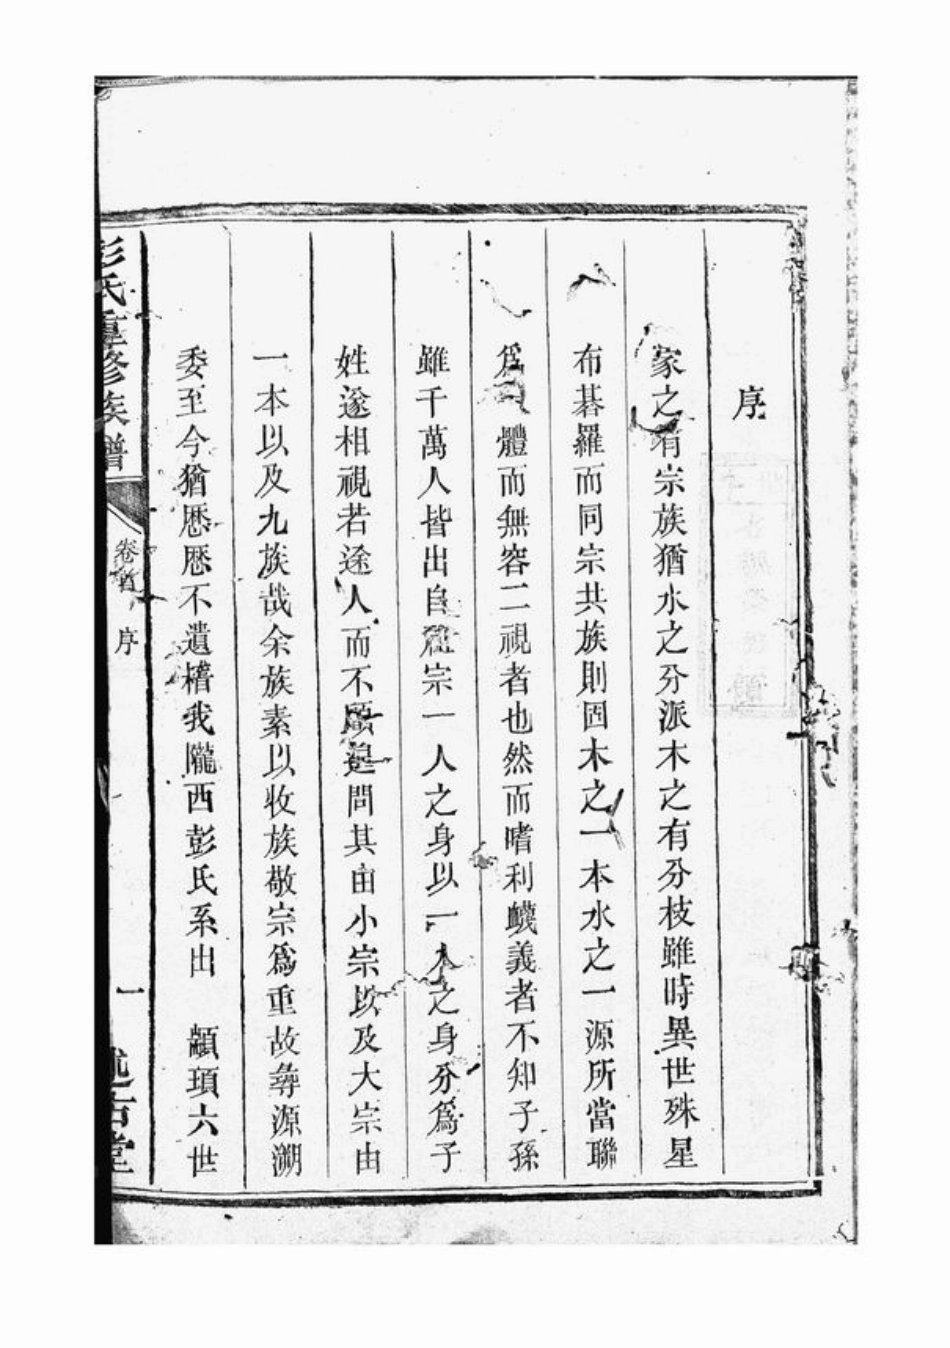 序
家之有宗族猶水之分派木之有分枝雖時異世殊星
布碁羅而同宗共族則固木之一本水之一源所當聯
爲體而無容二視者也然而嗜利衊義者不知子孫
雖千萬人皆出自祖宗一人之身以一人之身分爲子
姓遂相視若途人而不顧遑問其由小宗以及大宗由
一本以及九族哉余族素以收族敬宗爲重故彜源溯
委至今猶歷歷不遺稽我隴西彭氏系出 顓頊六世
彭氏重修族譜
卷首 序
一
述古堂